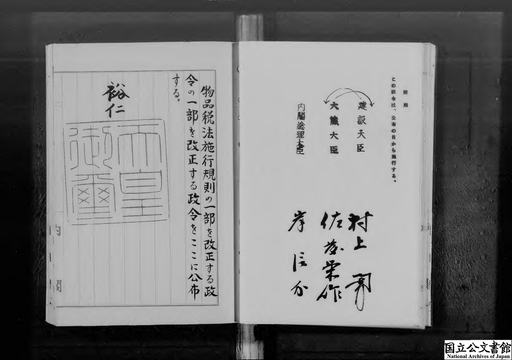 附則
この政令は、公布の日から施行する。
建設大臣
村上勇
大蔵大臣
佐藤榮作
内閣総理大臣
岸信介
物品税法施行規則の一部を改正する政
令の一部を改正する政令をここに公布
する。
裕仁
天皇
御璽
内閣
国立公文書館
National Archives of Japan